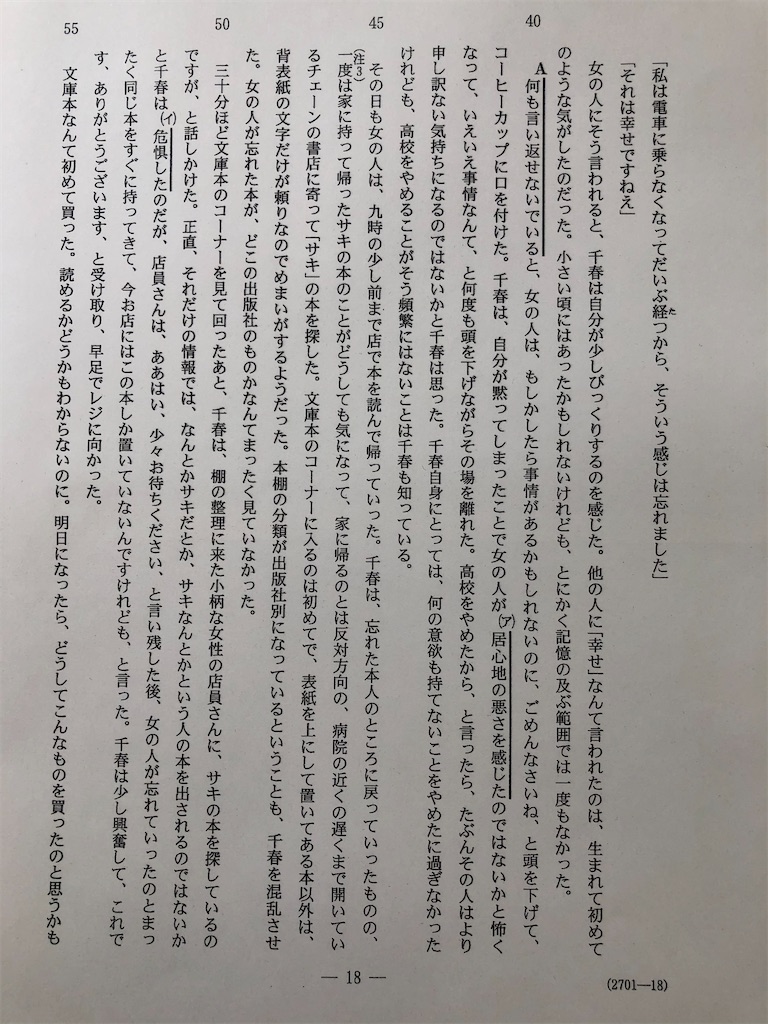 「私は電車に乗らなくなってだいぶ経つから、そういう感じは忘れました」
た
「それは幸せですねえ」
女の人にそう言われると、千春は自分が少しびっくりするのを感じた。他の人に「幸せ」なんて言われたのは、生まれて初めて
のような気がしたのだった。小さい頃にはあったかもしれないけれども、とにかく記憶の及ぶ範囲では一度もなかった。
40
A何も言い返せないでいると、女の人は、もしかしたら事情があるかもしれないのに、ごめんなさいね、と頭を下げて、
コーヒーカップに口を付けた。千春は、自分が黙ってしまったことで女の人が(ア)居心地の悪さを感じたのではないかと怖く
なって、いえいえ事情なんて、と何度も頭を下げながらその場を離れた。高校をやめたから、と言ったら、たぶんその人はより
申し訳ない気持ちになるのではないかと千春は思った。千春自身にとっては、何の意欲も持てないことをやめたに過ぎなかった
けれども、高校をやめることがそう頻繁にはないことは千春も知っている。
45
その日も女の人は、九時の少し前まで店で本を読んで帰っていった。千春は、忘れた本人のところに戻っていったものの、
(注3)
一度は家に持って帰ったサキの本のことがどうしても気になって、家に帰るのとは反対方向の、病院の近くの遅くまで開いてい
るチェーンの書店に寄って「サキ」の本を探した。文庫本のコーナーに入るのは初めてで、表紙を上にして置いてある本以外は、
背表紙の文字だけが頼りなのでめまいがするようだった。本棚の分類が出版社別になっているということも、千春を混乱させ
た。女の人が忘れた本が、どこの出版社のものかなんてまったく見ていなかった。
50
三十分ほど文庫本のコーナーを見て回ったあと、千春は、棚の整理に来た小柄な女性の店員さんに、サキの本を探しているの
ですが、と話しかけた。正直、それだけの情報では、なんとかサキだとか、サキなんとかという人の本を出されるのではないか
と千春は(イ)危惧したのだが、店員さんは、ああはい、少々お待ちください、と言い残した後、女の人が忘れていったのとまっ
たく同じ本をすぐに持ってきて、今お店にはこの本しか置いていないんですけれども、と言った。千春は少し興奮して、これで
す、ありがとうございます、と受け取り、早足でレジに向かった。
55
文庫本なんて初めて買った。読めるかどうかもわからないのに。明日になったら、どうしてこんなものを買ったのと思うかも
— 18 —
(2701—18)